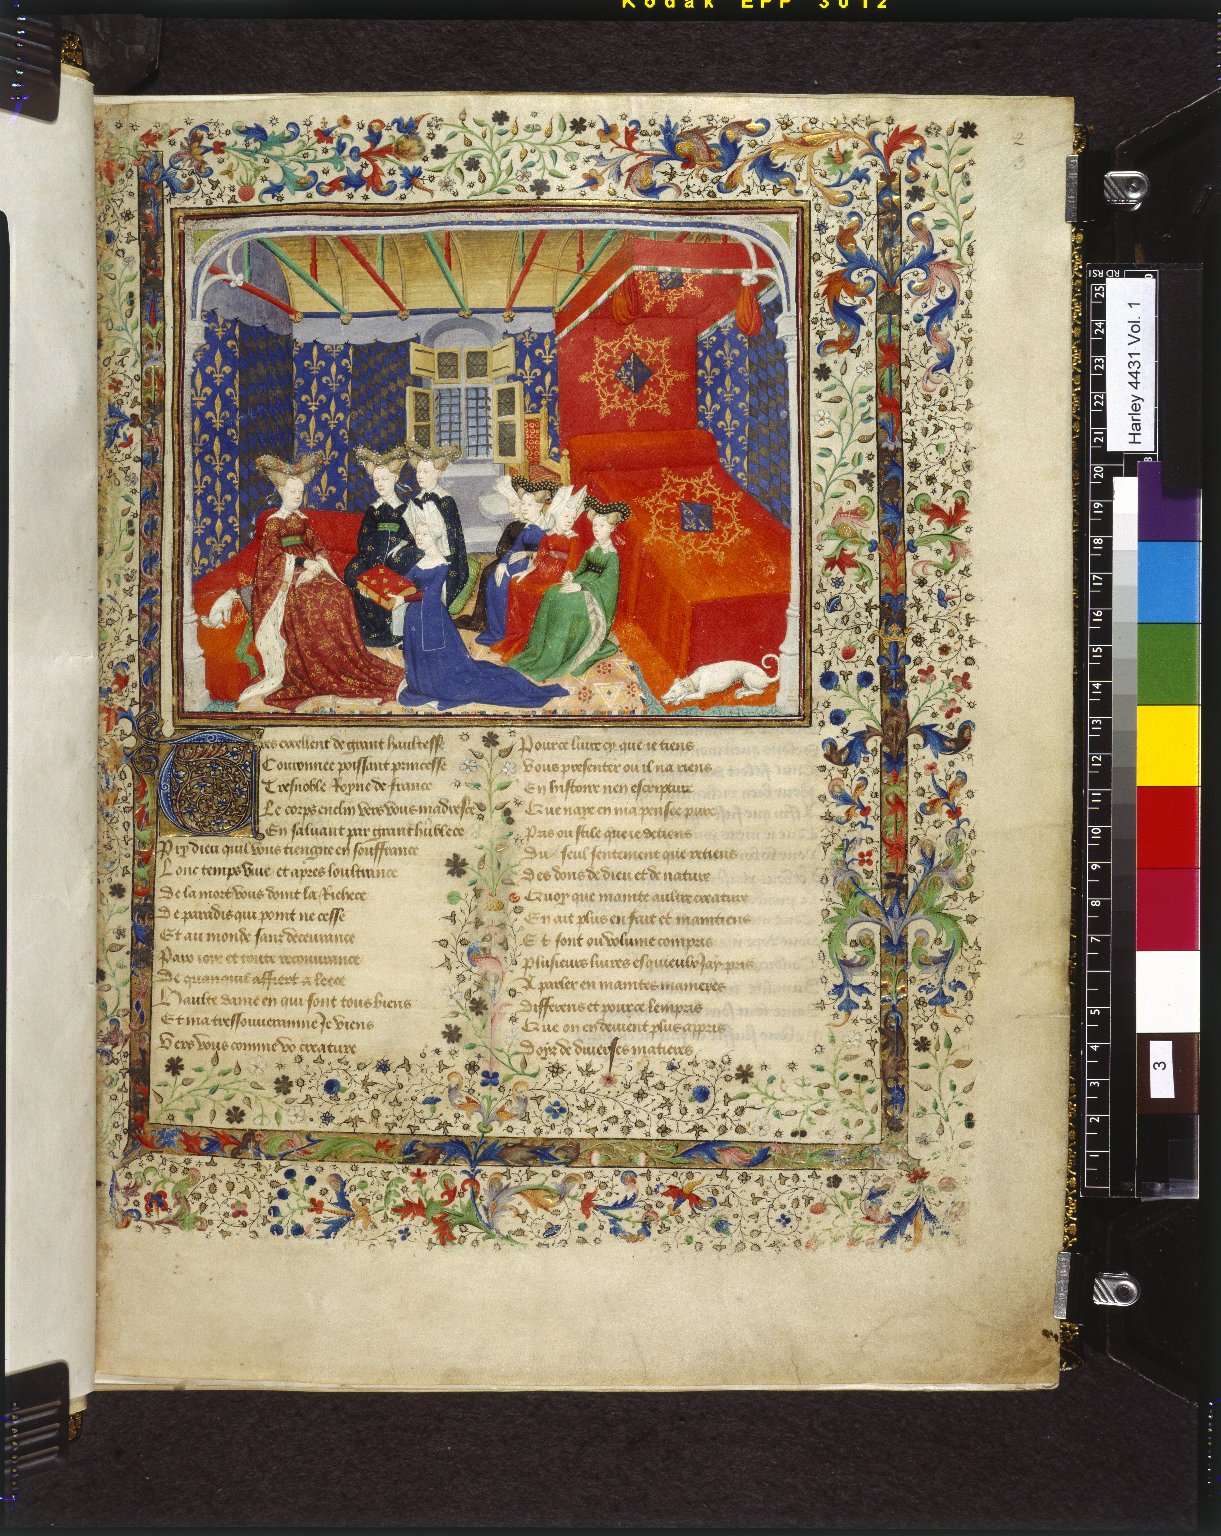 Kodak EPP 3012
2
3
Harley 4431 Vol. 1
Tres excellent de grant haultesse
Couronnee poissant princesse
Tresnoble Royne de france
Le corps enclin vers vous madresce
En saluant par grant humblece
Pry dieu quil vous tiengne en souffrance
Lonc temps viue et apres loultrance
De la mort vous doint la Richece
De paradis qui point ne cesse
Et au monde sanz deceurance
Paix ioye et toute recouurance
De quanquil affiert a leece
Haulte dame en qui sont tous biens
Et ma tressouueraine Je viens
Vers vous comme vo creature
Pour ce liure cy que ie tiens
Vous presenter ou il na riens
En histoire nen escripture
Que naye en ma pensee pure
Pris ou stile que ie detiens
Du seul sentement que retiens
Des dons de dieu et de nature
Quoy que mainte aultre creature
En ait plus en fait et maintiens
Et sont ou volume compris
Plusieurs liures esquieulx Jay pris
A parler en maintes manieres
Differens et pource lempris
Que on en deuient plus apris
Doyr de diuerses matieres
25
24
23
22
21
20
19
18
17
16
15
14
13
12
11
10
9
8
7
5
4
3
2
1
3